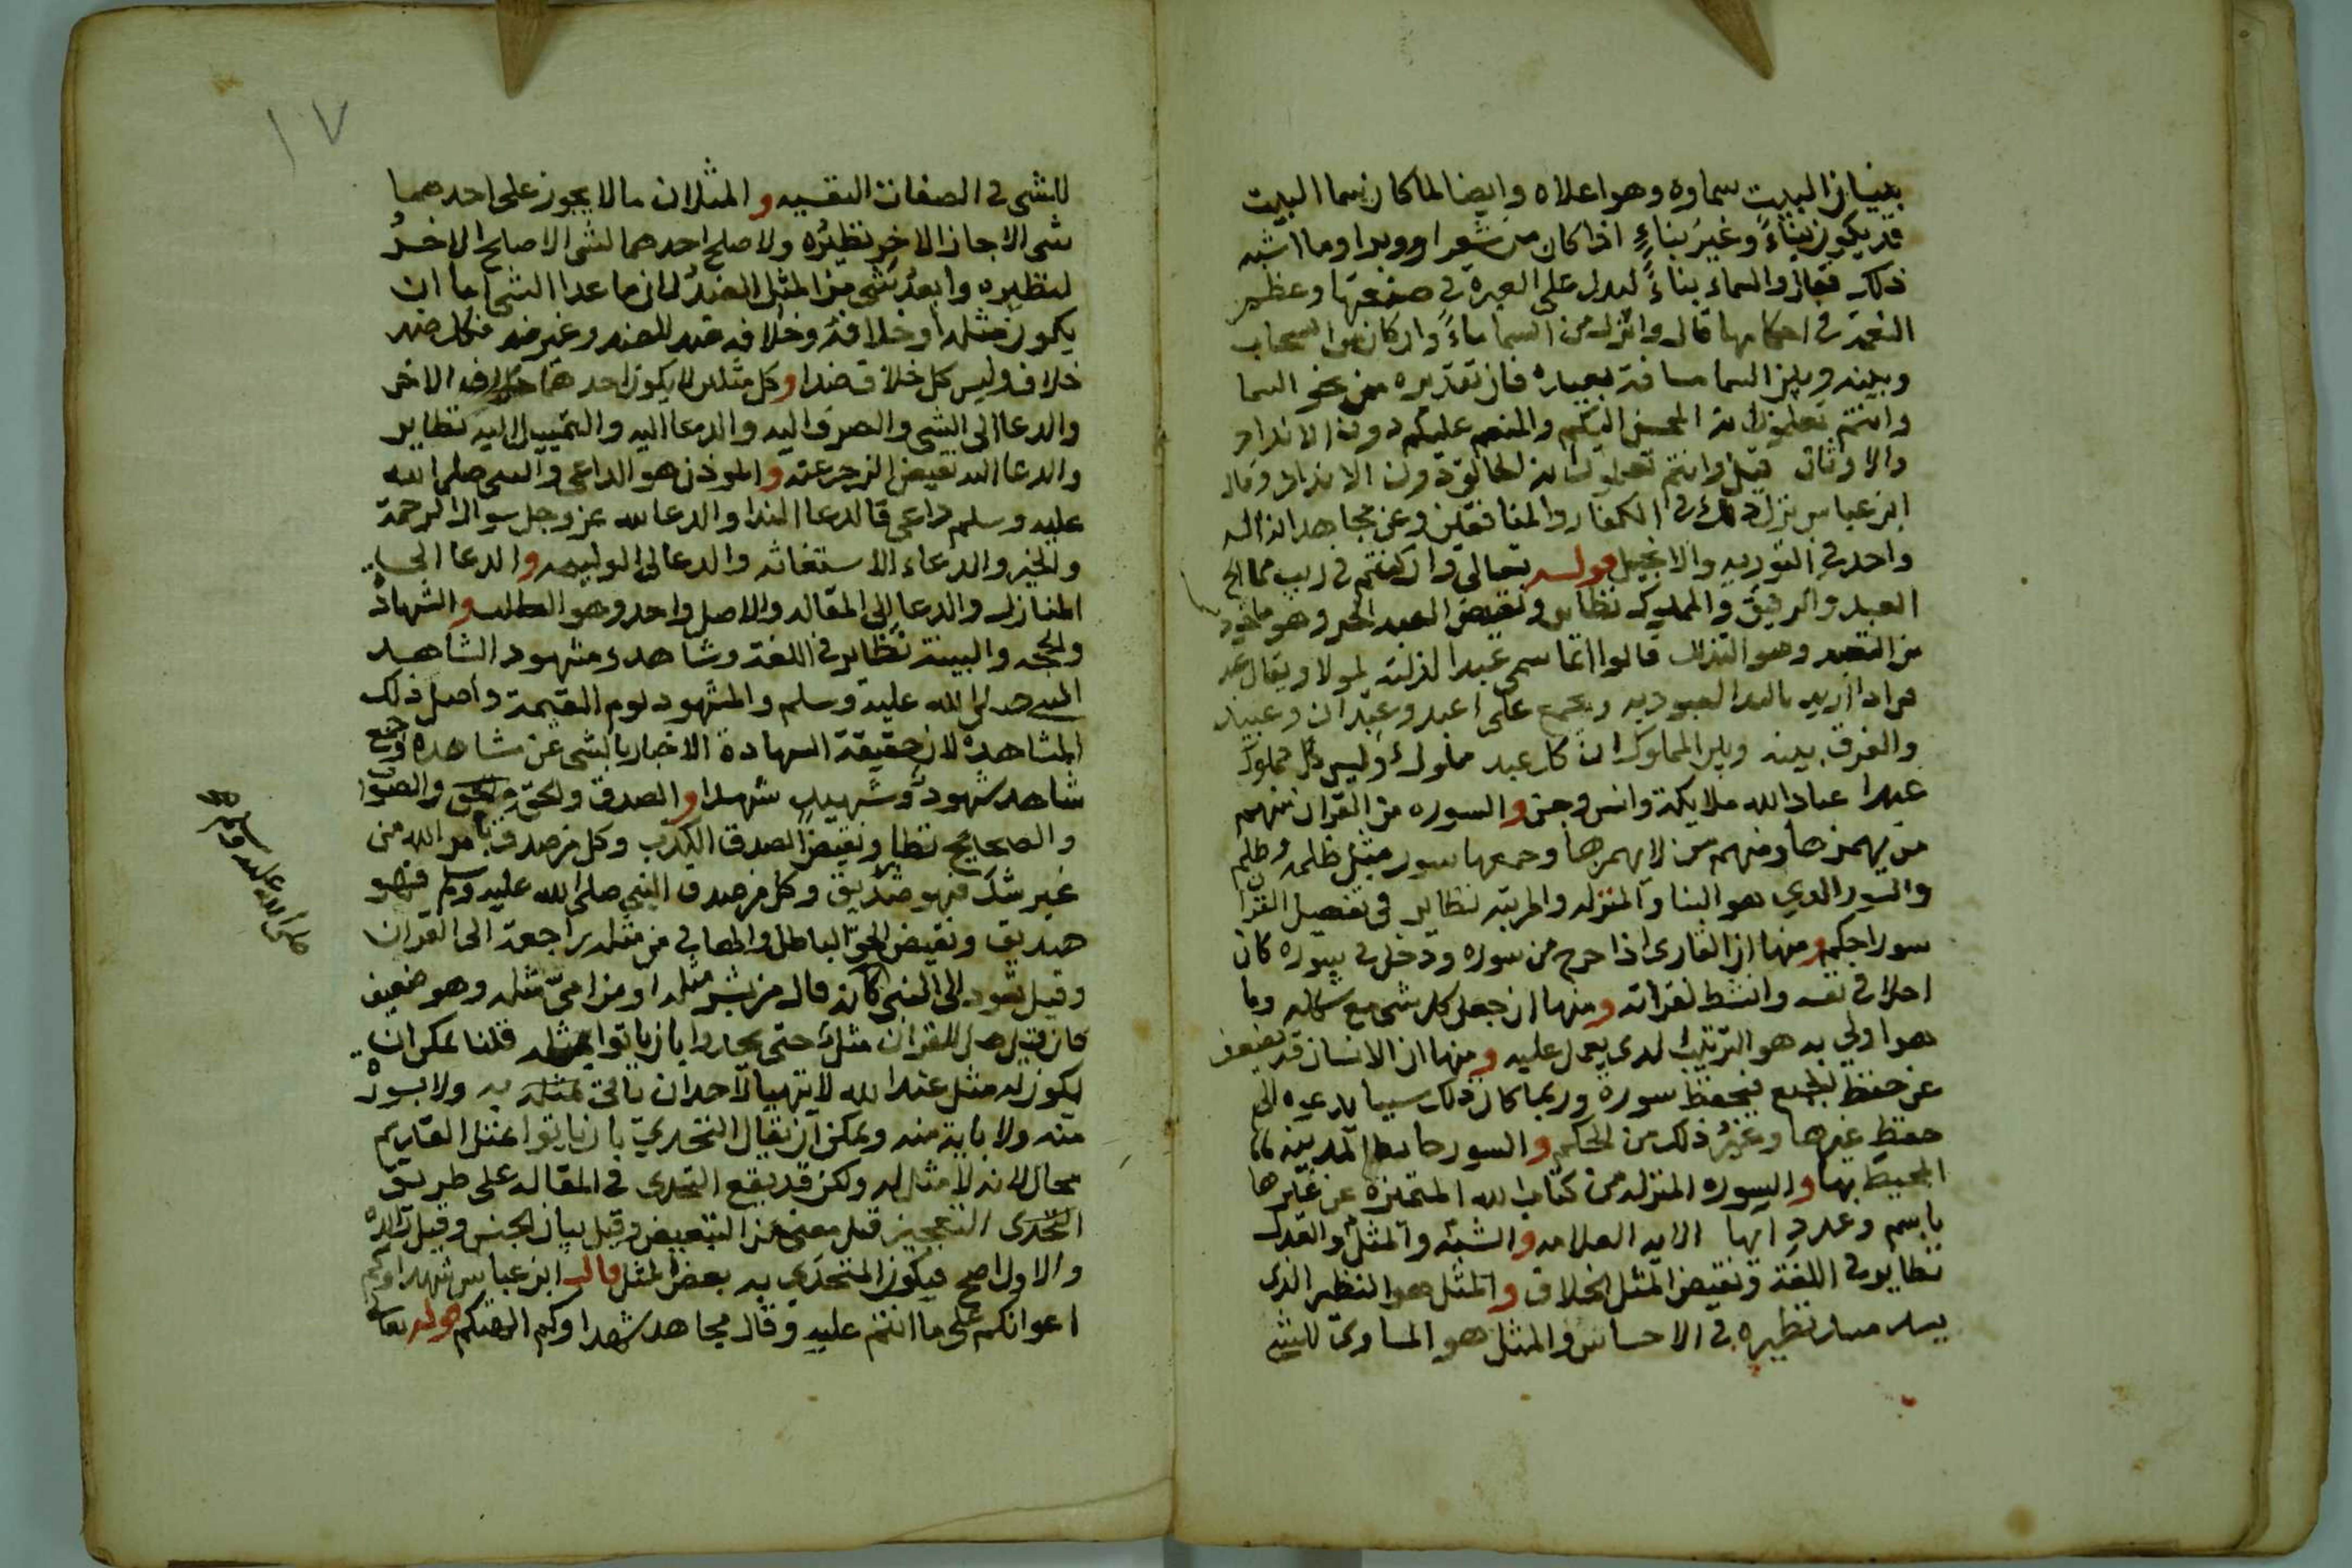 بنيان البيت سماوه وهو اعلاه وايضا لما كان سما البيت
قد يكون بناءً وغيرَ بناءٍ اذا كان من شعر او وبر او ما اشبه
ذلك فقال والسماء بناءً ليدل على العبرة في صنعتها وعظم
النعمة في احكامها قال وانزل من السما ماءً وان كان من السحاب
وبينه وبين السما مسافة بعيدة فان تقديره من نحو السما
وانتم تعلمون انه المحسن اليكم والمنعم عليكم دون الانداد
والاوثان قيل وانتم تعلمون انه الخالق دون الانداد وقال
ابن عباس نزل ذلك في الكفار والمنافقين وعن مجاهد انه اله
واحد في التوريه والانجيل قوله تعالى وان كنتم في ريب مما الخ
العبد والرقيق والمملوك نظاير ونقيض العبد الحر وهو ماخوذ
من التعبد وهو التذلل قالوا انما سمي عبدا لذلته لمولاه ويقال عبد
مراد اريد بالعبد العبوديه ويجمع على اعبد وعبدان وعبيد
والفرق بينه وبين المملوك ان كل عبد مملوك وليس كل مملوك
عبدا عباد الله ملايكة وانس وجن والسوره من القران منهم
من يهمزها ومنهم من لا يهمزها وجمعها سور مثل ظلمه وظلم
والسور الذي هو البنا والمنزله والمرتبه نظاير في تفصيل القران
سورا حكم ومنها ان القارى اذا خرج من سوره ودخل في سوره كان
احلا في نفسه وانشط لقراته ومنها ان جعل كل شى مع شكله وما
هو اولى به هو الترتيب الذى يعمل عليه ومنها ان الانسان قد يضعف
عن حفظ الجميع فيحفظ سورة وربما كان ذلك سببا يدعوه الى
حفظ غيرها وغيرُ ذلك من الحكم و السور حايط المدينه
المحيط بها والسوره المنزله من كتاب الله المتميزة عن غيرها
باسم وعدد ايها الايه العلامه والشبه والمثل والعدل
نظاير في اللغة ونقيض المثل الخلاف والمثل هو النظير الذى
يسد مسد نظيره في الاحساس والمثل هو المساوي للشى
١٧
للشى في الصفات النفسيه و المثلان ما لا يجوز على احدهما
شى الا جاز الاخر نظيرُه ولا صلح احدهما لشى الا صلح الاخرُ
لنظيره وابعدُ شى من المثل الضدُ لان ما عدا الشى اما ان
يكون مثله او خلافه وخلافه ضد للضد وغير ضد فكل ضد
خلاف وليس كل خلاف ضدا وكل مثلين لا يكون احدهما خلاف الاخر
والدعا الى الشى والصرف اليه والدعا اليه والتمييل اليه نظاير
والدعا اليه نقيض الزجر عنه و الموذن هو الداعى والنبى صلى الله
عليه وسلم داعى فالدعا الندا والدعا لله عز وجل سوال الرحمة
والخير والدعاء الاستغاثه والدعا الى الوليمه والدعا الى
المنازل والدعا الى المقاله والاصل واحد وهو الطلب والشهاده
والحجه والبينة نظاير في اللغة وشاهد ومشهود الشاهد
النبى صلى الله عليه وسلم والمشهود يوم القيمة واصل ذلك
المشاهدة لان حقيقة الشهادة الاخبار بالشى عن مشاهده وجمع
شاهد شهود وشهيد شهدا والصدق والحق والصواب
والصحيح نظاير ونقيض الصدق الكذب وكل من صدق بامر الله من
غير شك فهو صديق وكل من صدق النبي صلى الله عليه وسلم فهو
صديق ونقيض الحق الباطل والها في من مثله راجعة الى القران
وقيل تعود الى النبى كانه قال من بشر مثله او من امى مثله وهو ضعيف
فان قيل هل للقران مثل حتى يجاروا بان ياتوا بمثله قلنا يمكن ان
يكون له مثل عند الله لا يتهيا لاحد ان ياتى بمثله به ولا بسورة
منه ولا باية منه ويمكن ان يقال التحدي بان ياتوا مثل القديم
محال لانه لا مثل له ولكن قد يقع التحدى في المقاله على طريق
التحدى التعجيز قيل معنى من التبعيض وقيل بيان الجنس وقيل زايده
والاول اصح فيكون المتحدي به بعض المثل قال ابن عباس شهداوكم
اعوانكم على ما انتم عليه وقال مجاهد شهداوكم الهتكم قوله تعالى